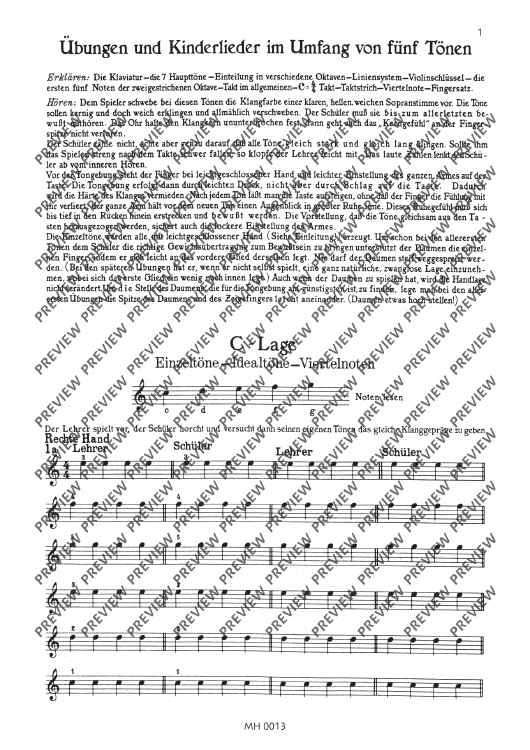 1
Übungen und Kinderlieder im Umfang von fünf Tönen
Erklären: Die Klaviatur – die 7 Haupttöne – Einteilung in verschiedene Oktaven – Liniensystem – Violinschlüssel – die
ersten fünf Noten der zweigestrichenen Oktave – Takt im allgemeinen – C = 4/4 Takt – Taktstrich – Viertelnote – Fingersatz.
Hören: Dem Spieler schwebe bei diesen Tönen die Klangfarbe einer klaren, hellen, weichen Sopranstimme vor. Die Töne
sollen kernig und doch weich erklingen und allmählich verschweben. Der Schüler muß sie bis zum allerletzten be-
wußt anhören. Das Ohr halte den Klangkern ununterbrochen fest, dann geht auch das „Kerngefühl“ an der Finger-
spitze nicht verloren.
Der Schüler zähle nicht, achte aber genau darauf, daß alle Töne gleich stark und gleich lang klingen. Sollte ihm
das Spielen streng nach dem Takte schwer fallen, so klopfe der Lehrer leicht mit. Das laute Zählen lenkt den Schü-
ler ab vom inneren Hören.
Vor der Tongebung steht der Finger bei leichtgeschlossener Hand und leichter Einstellung des ganzen Armes auf der
Taste. Die Tongebung erfolgt dann durch leichten Druck, nicht aber durch Schlag auf die Taste. Dadurch
wird die Härte des Klanges vermieden. Nach jedem Ton läßt man die Taste aufsteigen, ohne daß der Finger die Fühlung mit
ihr verliert. Der ganze Arm hält vor dem neuen Ton einen Augenblick in größter Ruhe inne. Dieses Ruhegefühl muß sich
bis tief in den Rücken hinein erstrecken und bewußt werden. Die Vorstellung, daß die Töne gleichsam aus den Ta-
sten herausgezogen werden, sichert auch die lockere Einstellung des Armes.
Die Einzeltöne werden alle mit leichtgeschlossener Hand (Siehe Einleitung) erzeugt. Um schon bei den allerersten
Tönen dem Schüler die richtige Gewichtsübertragung zum Bewußtsein zu bringen unterstützt der Daumen die einzel-
nen Finger, indem er sich leicht an das vordere Glied derselben legt. Nie darf der Daumen steif weggespreizt wer-
den. (Bei den späteren Übungen hat er, wenn er nicht selbst spielt, eine ganz natürliche, zwanglose Lage einzuneh-
men, wobei sich das erste Glied ein wenig nach innen legt.) Auch wenn der Daumen zu spielen hat, wird die Handlage
nicht verändert. Um die Stelle des Daumens, die für die Tongebung am günstigsten ist, zu finden, lege man bei den aller-
ersten Übungen die Spitze des Daumens und des Zeigefingers leicht aneinander. (Daumen etwas hoch stellen!)
C-Lage
Einzeltöne – Idealtöne – Viertelnoten
Noten lesen
c d e f g
Der Lehrer spielt vor, der Schüler horcht und versucht dann seinen eigenen Tönen das gleiche Klanggepräge zu geben.
Rechte Hand
1a Lehrer Schüler Lehrer Schüler
MH 0013